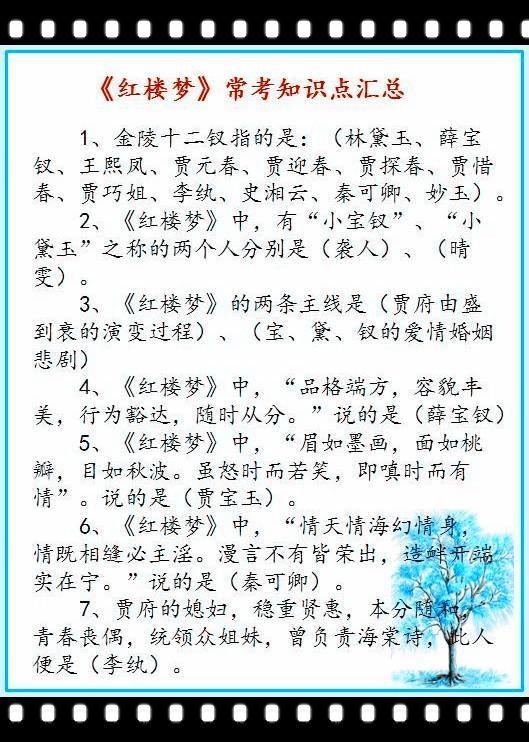 《红楼梦》常考知识点汇总
1、金陵十二钗指的是：（林黛玉、薛宝
钗、王熙凤、贾元春、贾迎春、贾探春、贾惜
春、贾巧姐、李纨、史湘云、秦可卿、妙玉）。
2、《红楼梦》中，有“小宝钗”、“小
黛玉”之称的两个人分别是（袭人）、（晴
雯）。
3、《红楼梦》的两条主线是（贾府由盛
到衰的演变过程）、（宝、黛、钗的爱情婚姻
悲剧）
4、《红楼梦》中，“品格端方，容貌丰
美，行为豁达，随时从分。”说的是（薛宝钗）
5、《红楼梦》中，“眉如墨画，面如桃
瓣，目如秋波。虽怒时而若笑，即嗔时而有
情”。说的是（贾宝玉）。
6、《红楼梦》中，“情天情海幻情身，
情既相缝必主淫。漫言不肖皆荣出，造衅开端
实在宁。”说的是（秦可卿）。
7、贾府的媳妇，稳重贤惠，本分随和，
青春丧偶，统领众姐妹，曾负责海棠诗，此人
便是（李纨）。